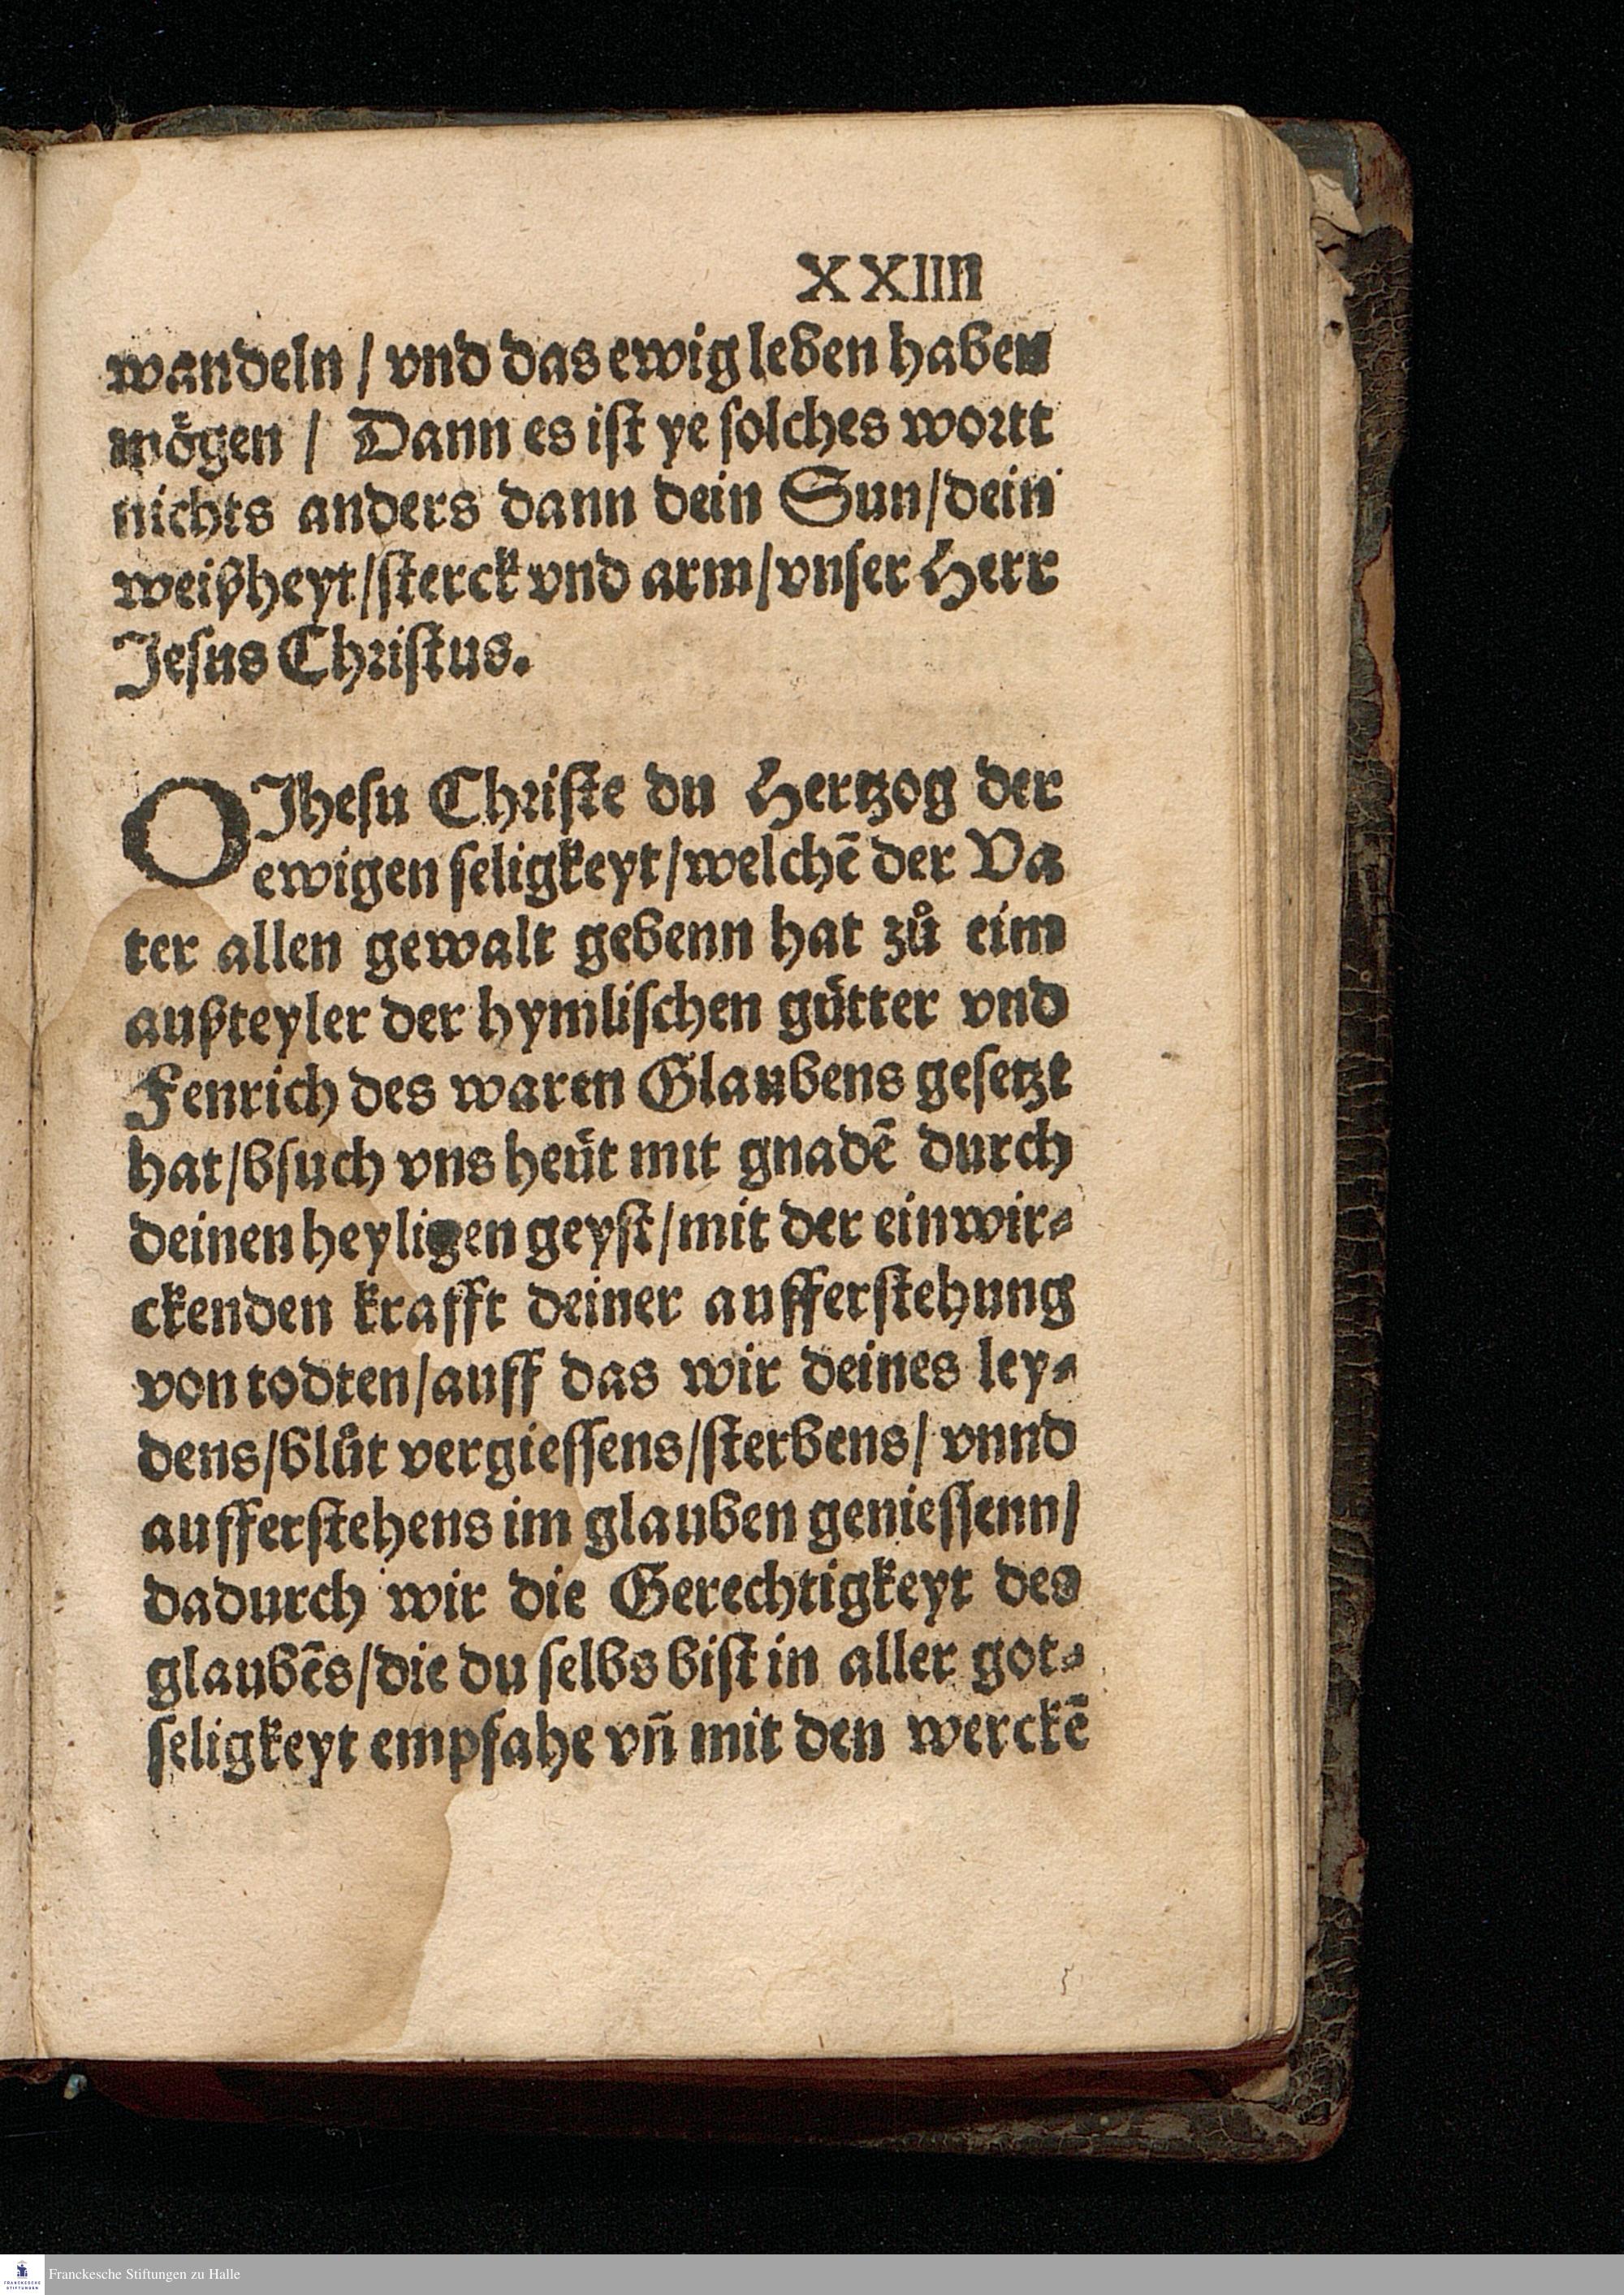 XXIIII
wandeln / vnd das ewig leben haben
mögen / Dann es ist ye solches wortt
nichts anders dann dein Sun/dein
weißheyt/sterck vnd arm/vnser Herr
Jesus Christus.
O Jhesu Christe du Hertzog der
ewigen seligkeyt/welchẽ der Va
ter allen gewalt gebenn hat zů eim
außteyler der hymlischen gütter vnd
Fenrich des waren Glaubens gesetzt
hat/bsuch vns heüt mit gnadẽ durch
deinen heyligen geyst/mit der einwir⸗
ckenden krafft deiner aufferstehung
von todten/auff das wir deines ley⸗
dens/blůt vergiessens/sterbens/ vnnd
aufferstehens im glauben geniessenn/
dadurch wir die Gerechtigkeyt des
glaubẽs/die du selbs bist in aller got⸗
seligkeyt empfahe vñ mit den werckẽ
Franckesche Stiftungen zu Halle
FRANCKESCHE
STIFTUNGEN